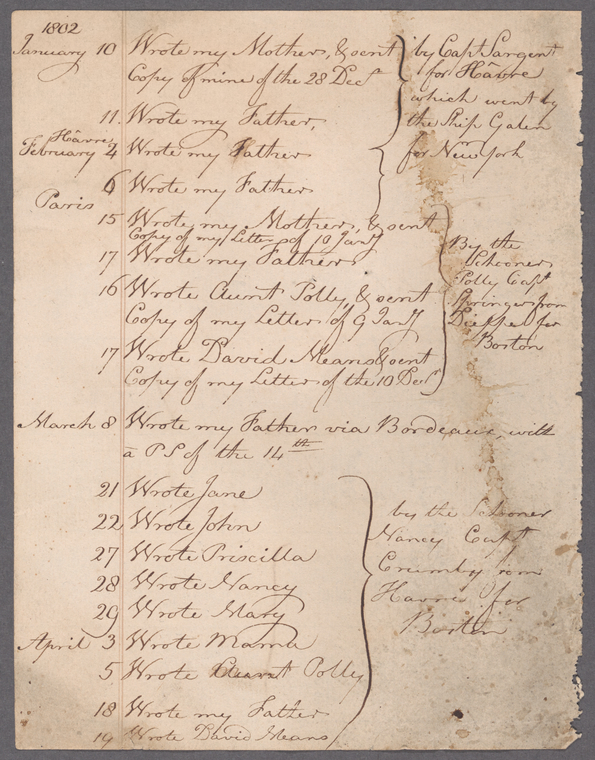 1802
January 10 Wrote my Mother, & sent
Copy of mine of the 28 Decr
11. Wrote my Father,
by Capt Sargent
for Hâvre
which went by
the Ship Galen
for New York
Hâvre
February 4 Wrote my Father
6 Wrote my Father
Paris
15 Wrote my Mother, & sent
Copy of my Letter of 10 Jany
17 Wrote my Father
16 Wrote Aunt Polly, & sent
Copy of my Letter of 9 Jany
17 Wrote David Means & sent
Copy of my Letter of the 10 Decr
By the
Schooner
Polly Capt
Springer from
Dieppe for
Boston
March 8 Wrote my Father via Bordeaux, with
a PS of the 14th
21 Wrote Jane
22 Wrote John
27 Wrote Priscilla
28 Wrote Nancy
29 Wrote Mary
April 3 Wrote Mama
5 Wrote Aunt Polly
18 Wrote my Father
19 Wrote David Means
by the Schooner
Nancy Capt
Crumby from
Havre for
Boston